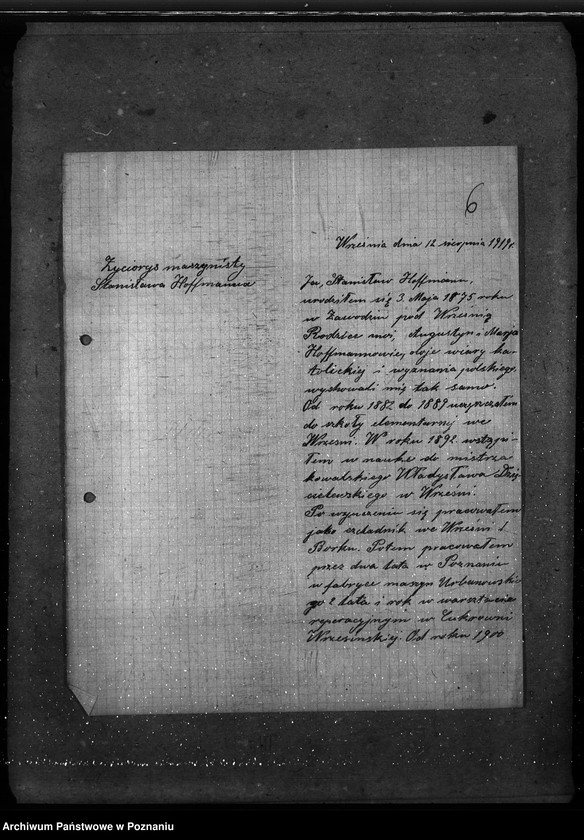 6
Września dnia 12 sierpnia 1919 r.
Życiorys maszynisty
Stanisława Hoffmanna
Ja, Stanisław Hoffmann,
urodziłem się 3. Maja 1875 roku
w Zawodziu pod Wrześnią
Rodzice moi, Augustyn i Marja
Hoffmannowie, oboje wiary ka-
tolickiej i wyznania polskiego,
wychowali mię tak samo.
Od roku 1882 do 1889 uczęszczałem
do szkoły elementarnej we
Wrześni. W roku 1892 wstąpi-
łem w naukę do mistrza
kowalskiego Władysława
w Wrześni.
Po wyuczeniu się pracowałem
jako czeladnik we Wrześni i
Borku. Potem pracowałem
przez dwa lata w Poznaniu
w fabryce maszyn Urbanowskie-
go 2 lata i rok w warsztacie
reperacyjnym w Cukrowni
Wrzesińskiej. Od roku 1900
Archiwum Państwowe w Poznaniu